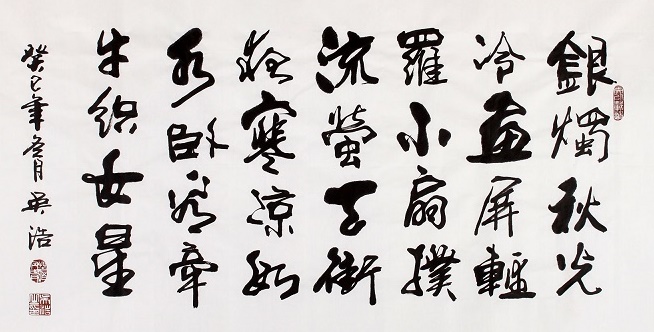 銀燭秋光
冷畫屏輕
羅小扇撲
流螢天街
夜寒涼如
水卧看牽
牛織女星
癸巳年冬月吳浩